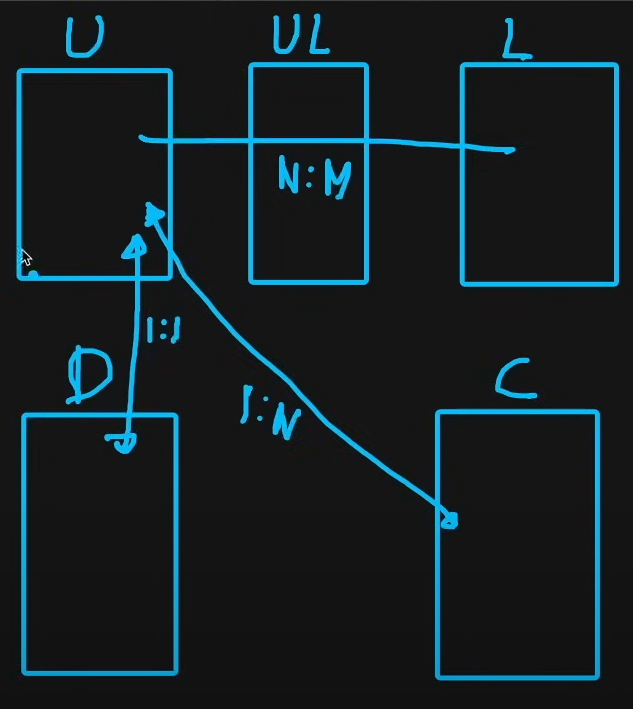 U UL L
N:M
1:1
D C
1:N